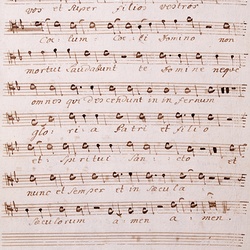 vos et super filios vestros
Coelum Coeli Domino non
mortui laudabunt te Domine neque
omnes qui descendunt in in fernum
glo: ri a Patri et filio
et: Spiritui San: cto et
nunc et semper et in saecula
saeculorum a men a: men.